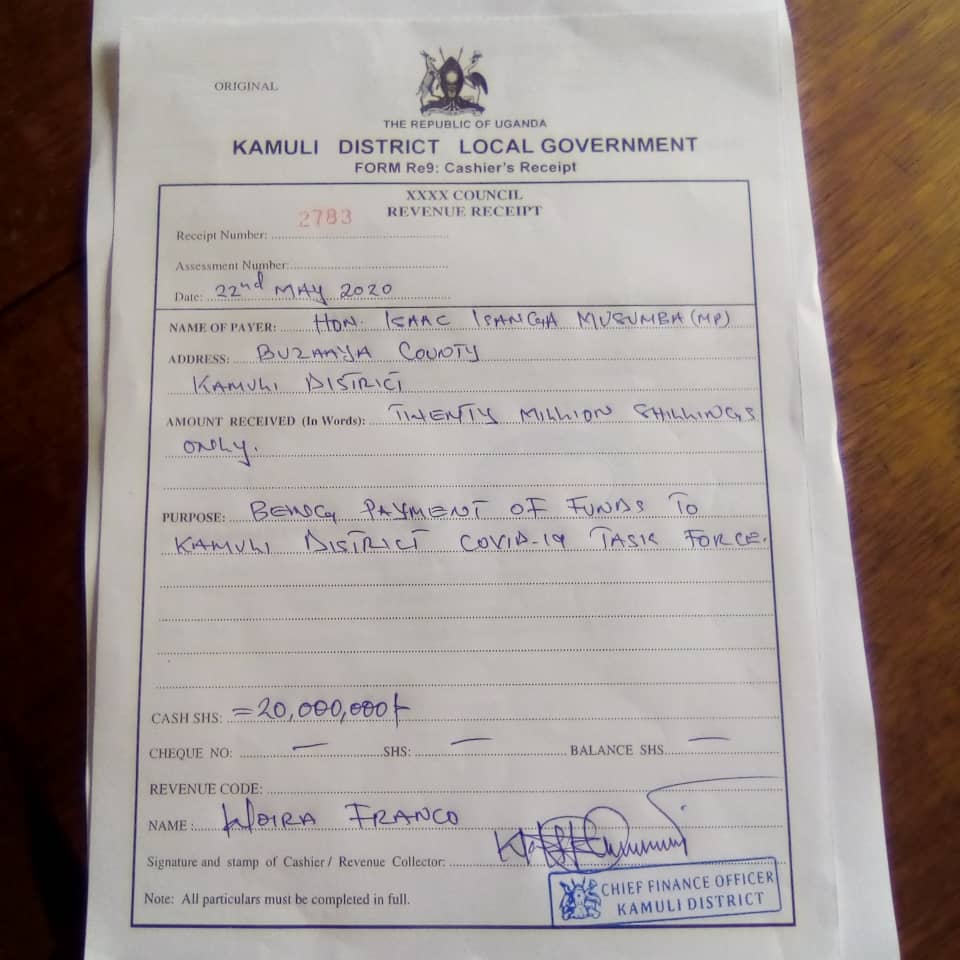 ORIGINAL
THE REPUBLIC OF UGANDA
KAMULI DISTRICT LOCAL GOVERNMENT
FORM Re9: Cashier's Receipt
XXXX COUNCIL
REVENUE RECEIPT
Receipt Number: 2783
Assessment Number:
Date: 22nd MAY 2020
NAME OF PAYER: HON. ISAAC ISANGA MUSUMBA (MP)
ADDRESS: BUZAAYA COUNTY
KAMULI DISTRICT
AMOUNT RECEIVED (In Words): TWENTY MILLION SHILLINGS
ONLY.
PURPOSE: BEING PAYMENT OF FUNDS TO
KAMULI DISTRICT COVID-19 TASK FORCE.
CASH SHS: =20,000,000/-
CHEQUE NO: — SHS: — BALANCE SHS. —
REVENUE CODE:
NAME: FRANCO
Signature and stamp of Cashier / Revenue Collector:
CHIEF FINANCE OFFICER
KAMULI DISTRICT
Note: All particulars must be completed in full.